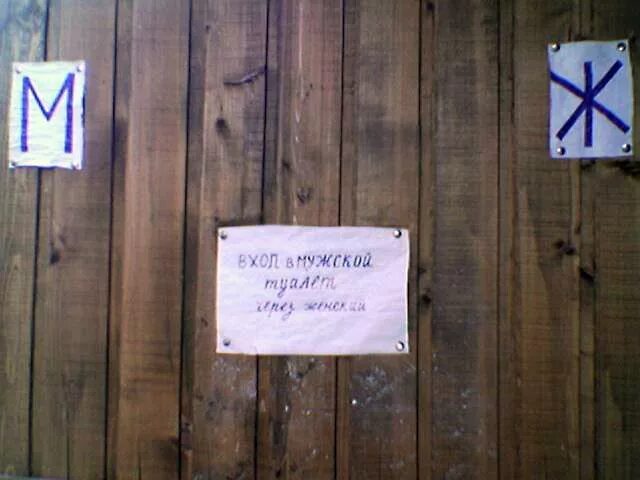 М
Ж
ВХОД в МУЖСКОЙ
туалет
через женский